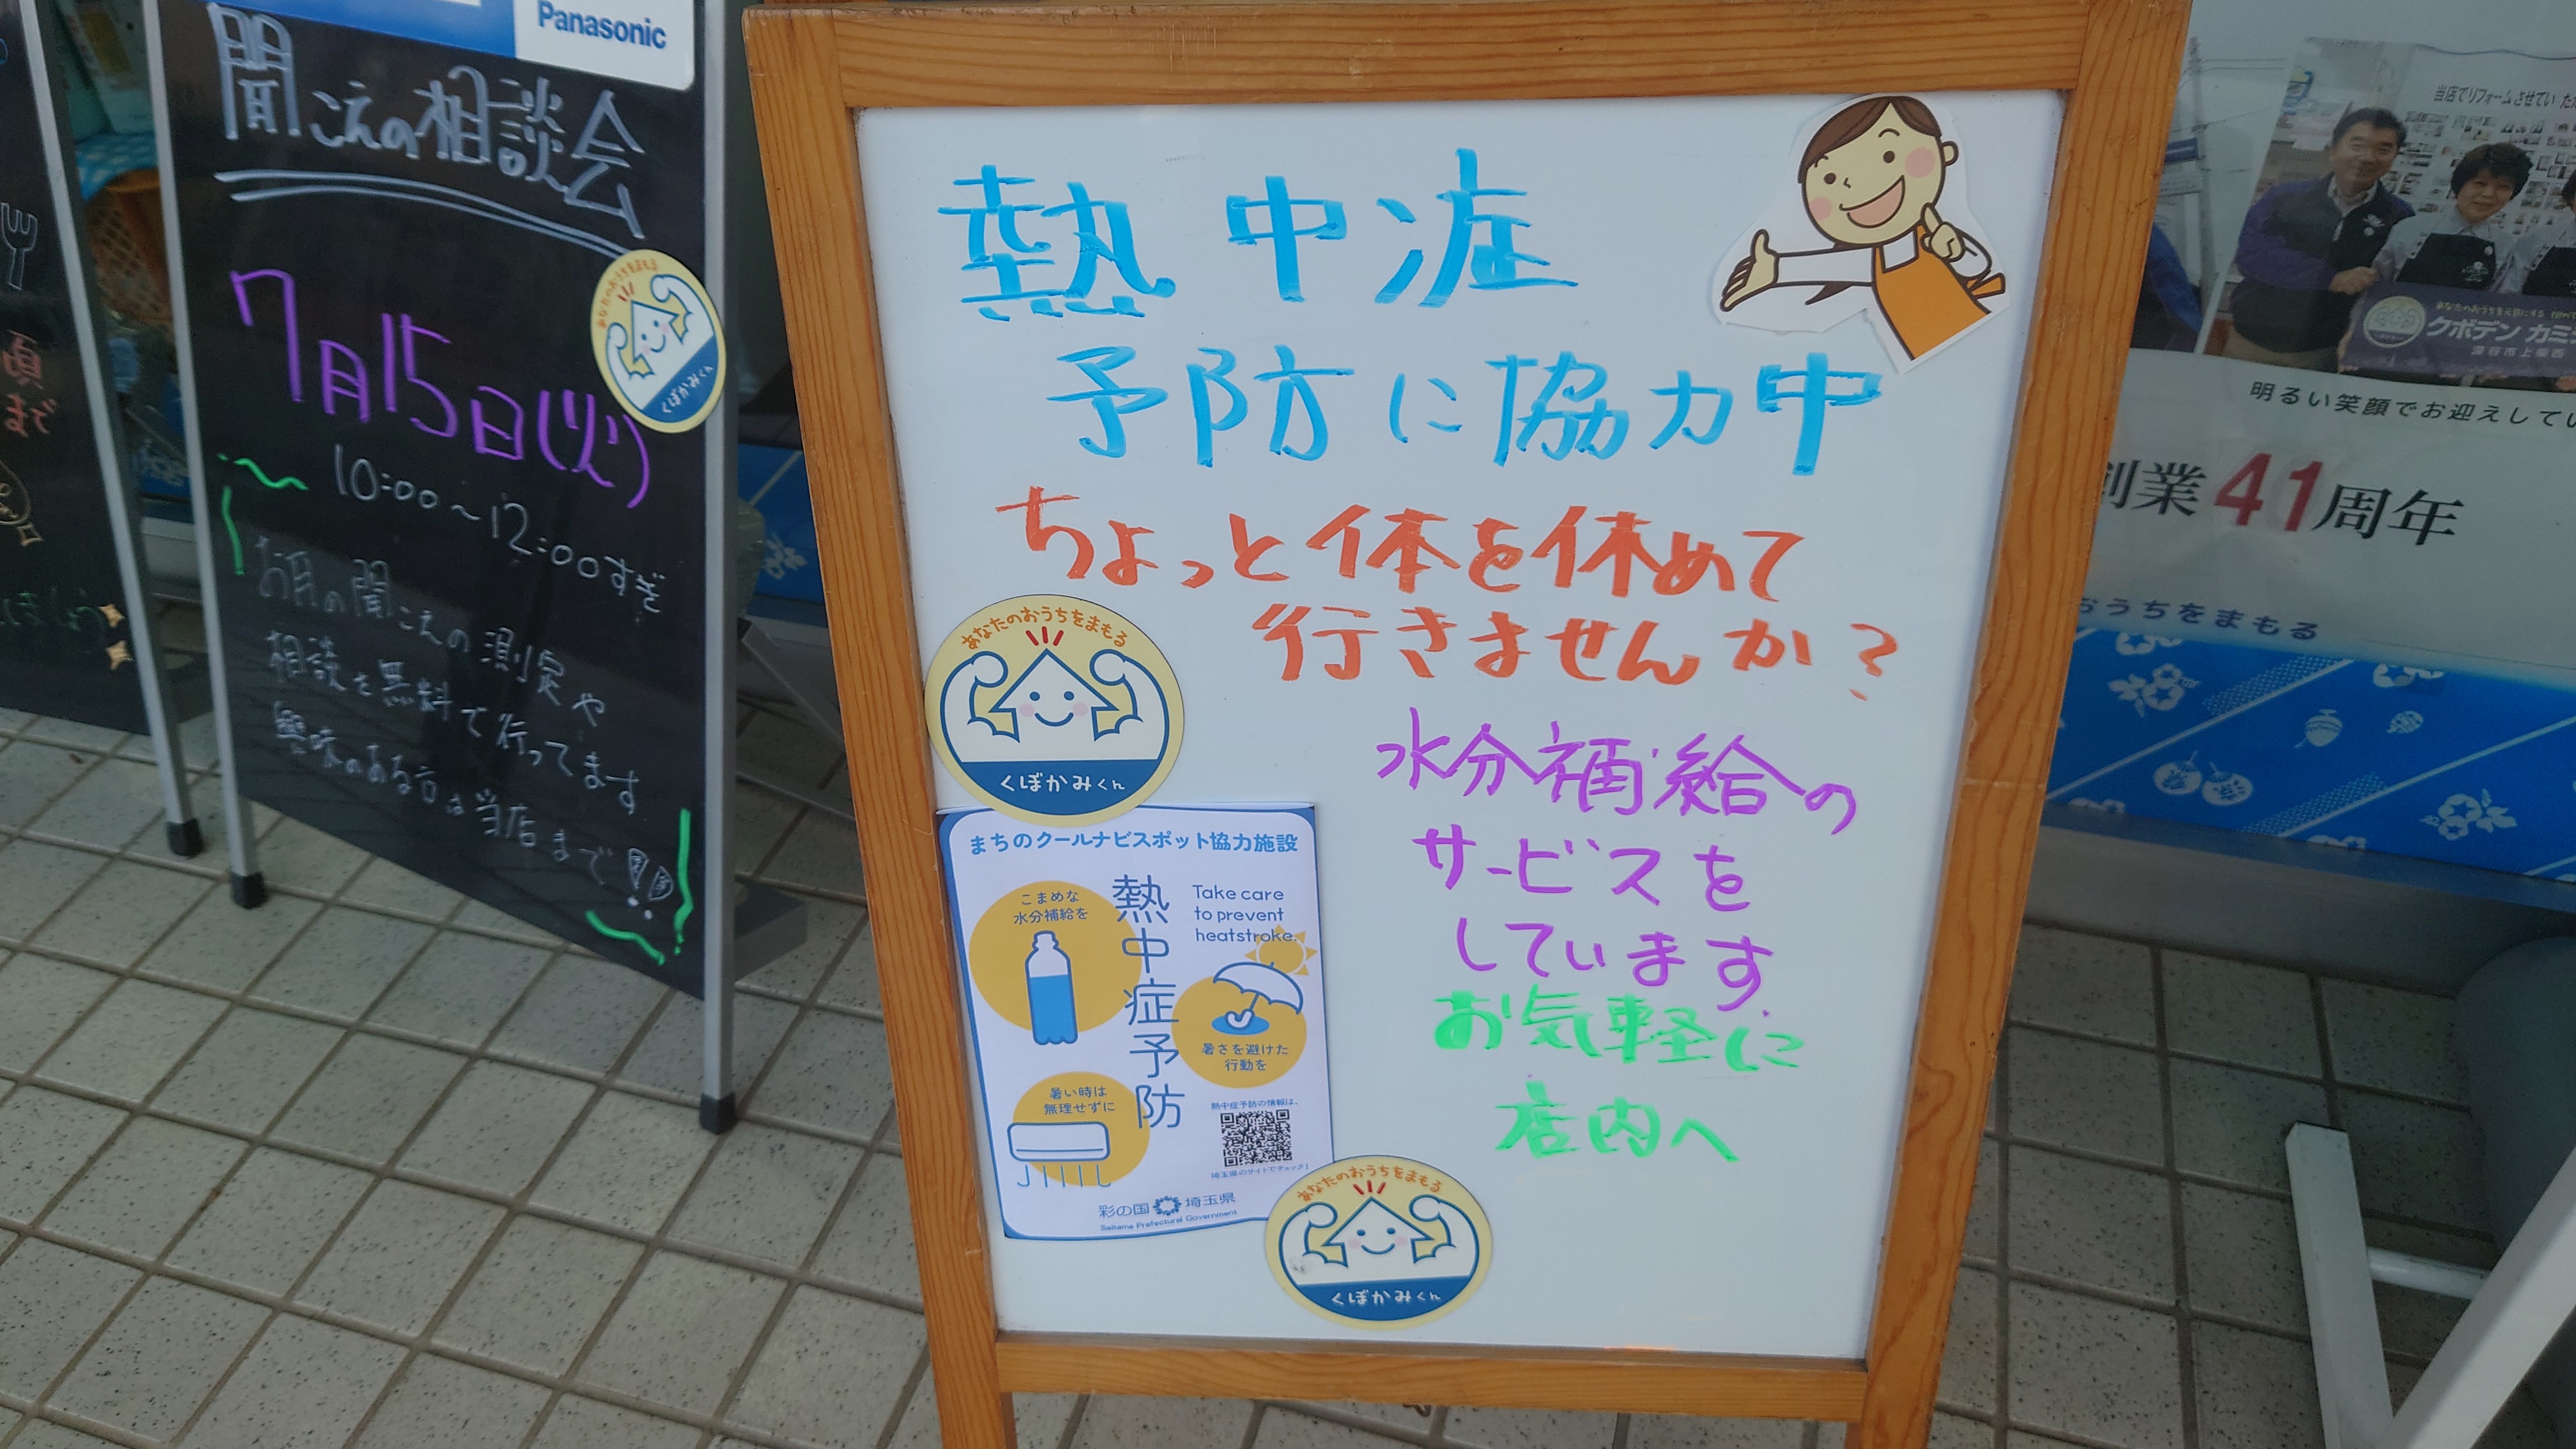 Panasonic
聞こえの相談会
7月15日(火)
10:00〜12:00すぎ
お耳の聞こえの測定や
相談を無料で行ってます
興味のある方は当店まで!!
あなたのおうちをまもる
くぼかみくん
頃
まで
ましょう
熱中症
予防に協力中
ちょっと体を休めて
行きませんか?
水分補給の
サービスを
しています
お気軽に
店内へ
あなたのおうちをまもる
くぼかみくん
まちのクールナビスポット協力施設
こまめな
水分補給を
熱中症予防
Take care
to prevent
heatstroke.
暑さを避けた
行動を
暑い時は
無理せずに
熱中症予防の情報は、
埼玉県のサイトでチェック!
彩の国 埼玉県
Saitama Prefectural Government
あなたのおうちをまもる
くぼかみくん
当店でリフォームさせていた
クボデン カミ
深谷市上柴西
明るい笑顔でお迎えしてい
創業41周年
おうちをまもる